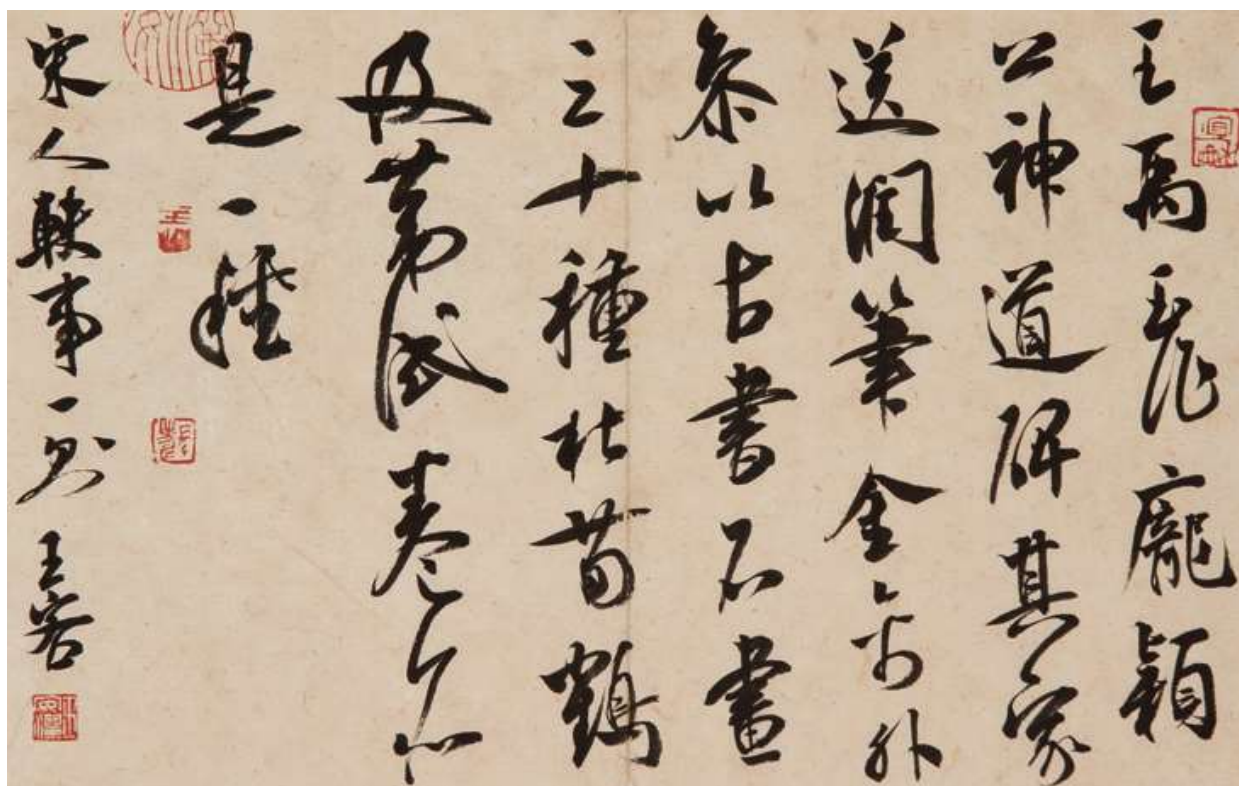 王禹玉作龐頴
公神道碑其家
送潤筆金帛外
參以古書名畫
三十種杜荀鶴
及第試卷亦
是一種
宋人軼事一則 王容